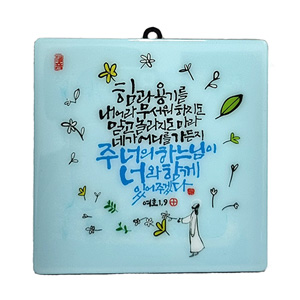 힘과 용기를
내어라 무서워하지도
말고 놀라지도 마라
네가 어디를 가든지
주 너의 하느님이
너와 함께
있어주겠다
여호 1,9